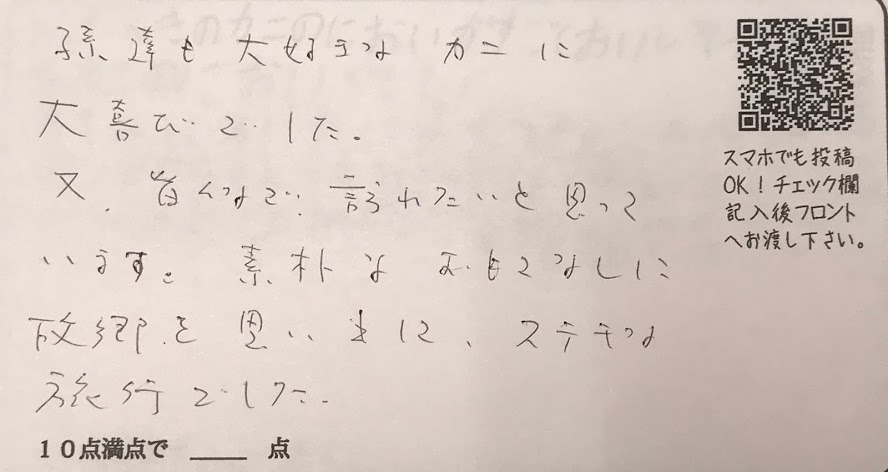 孫達も大好きなカニに
大喜びでした。
又、皆んなで訪れたいと思って
います。素朴なおもてなしに
故郷を思い、ステキな
旅行でした。
スマホでも投稿
OK！チェック欄
記入後フロント
へお渡し下さい。
10点満点で ____ 点